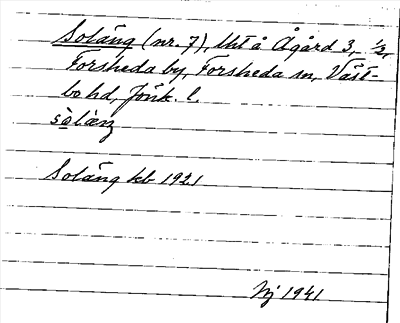 Soläng (nr. 7), lht å Ågård 3, ½,
Forsheda by, Forsheda sn, Väst-
bo hd, Jönk. l.
sòlàŋ
Soläng kb 1921
Nj 1941